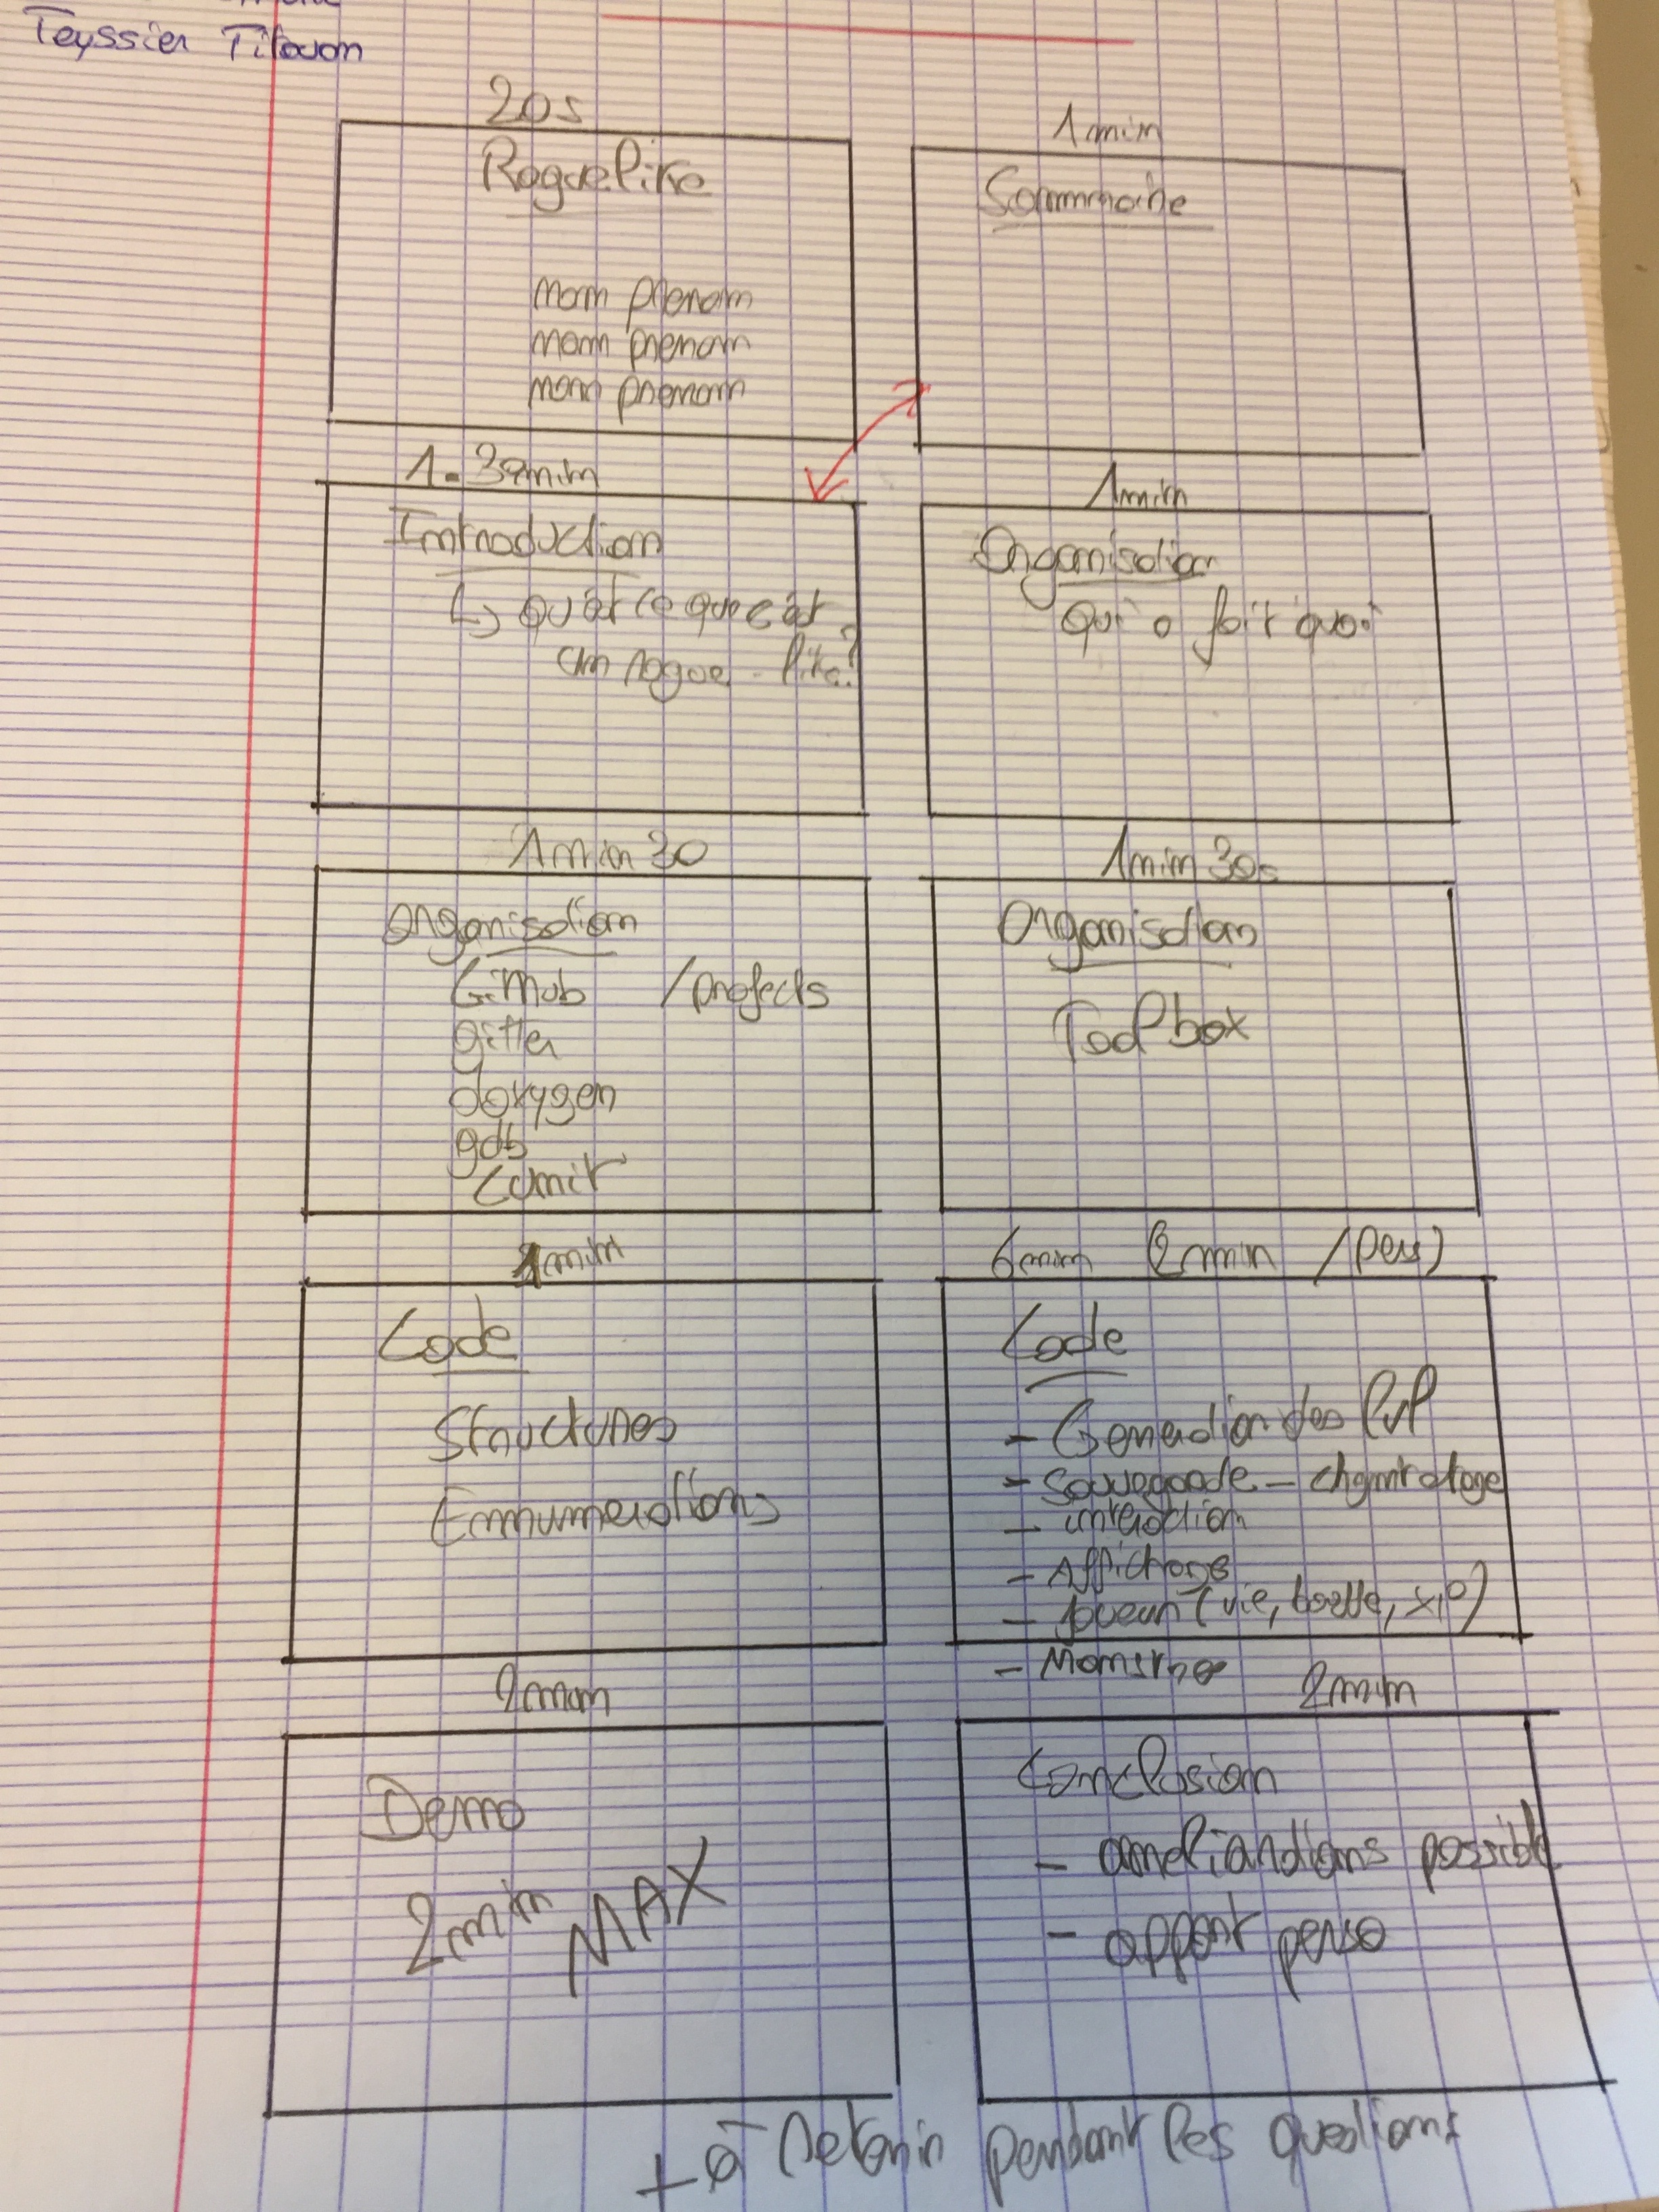 Teyssier Titouan
20s
Roguelike
nom prenom
nom prenom
nom prenom
1min
Sommaire
1.30min
Introduction
↳ qu'est ce que c'est
un rogue-like?
1min
Organisation
qui a fait quoi
1min 30
Organisation
GitHub /projects
gitter
doxygen
gdb
cunit
1min 30s
Organisation
Toolbox
1min
Code
Structures
Ennumerations
6min (2min /pers)
Code
- Generation des lvl
- sauvegarde -
- interaction
- Affichage
- joueur (vie, bouffe, xp)
- Monstre
2min
Demo
2min MAX
2min
Conclusion
- ameliorations possible
- apport perso
+ à retenir pendant les questions